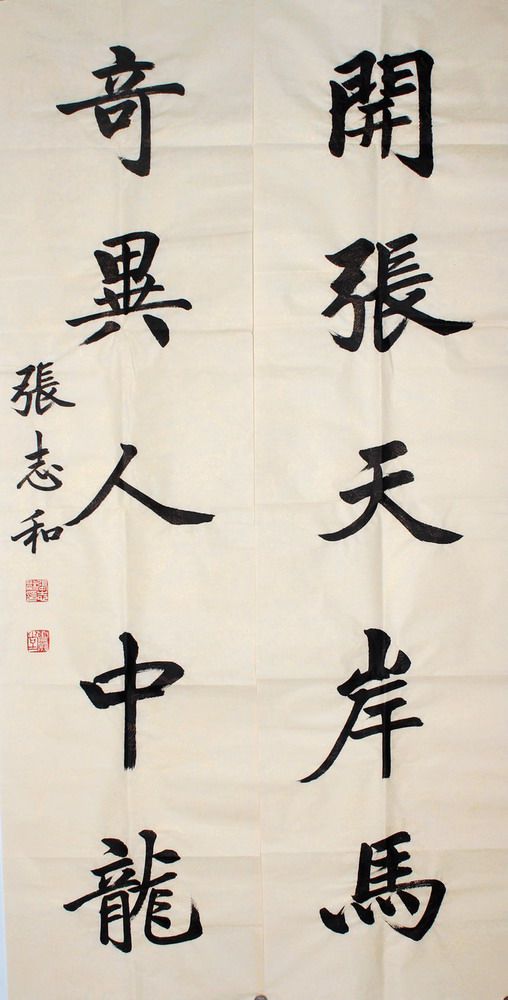 開張天岸馬
奇異人中龍
張志和